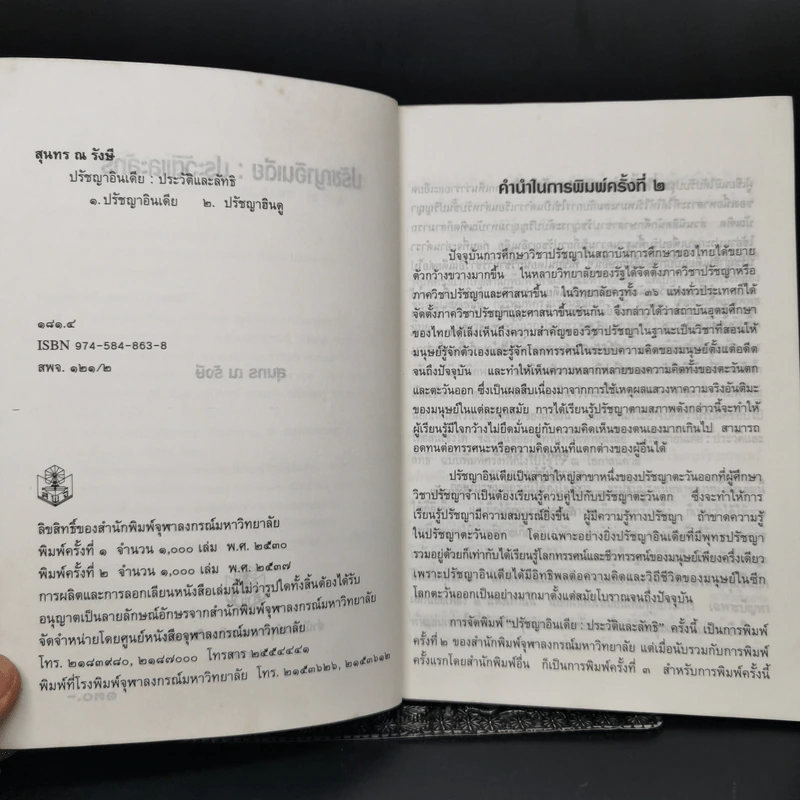 สุนทร ณ รังษี
ปรัชญาอินเดีย : ประวัติและลัทธิ
๑. ปรัชญาอินเดีย ๒. ปรัชญาฮินดู
๑๘๑.๔
ISBN 974-584-863-8
สพจ. ๑๒๑/๒
ลิขสิทธิ์ของสำนักพิมพ์จุฬาลงกรณ์มหาวิทยาลัย
พิมพ์ครั้งที่ ๑ จำนวน ๑,๐๐๐ เล่ม พ.ศ. ๒๕๓๐
พิมพ์ครั้งที่ ๒ จำนวน ๑,๐๐๐ เล่ม พ.ศ. ๒๕๓๗
การผลิตและการลอกเลียนหนังสือเล่มนี้ไม่ว่ารูปใดทั้งสิ้นต้องได้รับ
อนุญาตเป็นลายลักษณ์อักษรจากสำนักพิมพ์จุฬาลงกรณ์มหาวิทยาลัย
จัดจำหน่ายโดยศูนย์หนังสือจุฬาลงกรณ์มหาวิทยาลัย
โทร. ๒๑๘๓๙๘๐, ๒๑๘๗๐๐๐ โทรสาร ๒๕๕๔๔๔๑
พิมพ์ที่โรงพิมพ์จุฬาลงกรณ์มหาวิทยาลัย โทร. ๒๑๕๓๖๒๖, ๒๑๕๓๖๑๒
คำนำในการพิมพ์ครั้งที่ ๒
ปัจจุบันการศึกษาวิชาปรัชญาในสถาบันการศึกษาของไทยได้ขยาย
ตัวกว้างขวางมากขึ้น ในหลายวิทยาลัยของรัฐได้จัดตั้งภาควิชาปรัชญาหรือ
ภาควิชาปรัชญาและศาสนาขึ้น ในวิทยาลัยครูทั้ง ๓๖ แห่งทั่วประเทศก็ได้
จัดตั้งภาควิชาปรัชญาและศาสนาขึ้นเช่นกัน จึงกล่าวได้ว่าสถาบันอุดมศึกษา
ของไทยได้เล็งเห็นถึงความสำคัญของวิชาปรัชญาในฐานะเป็นวิชาที่สอนให้
มนุษย์รู้จักตัวเองและรู้จักโลกทรรศน์ในระบบความคิดของมนุษย์ตั้งแต่อดีต
จนถึงปัจจุบัน และทำให้เห็นความหลากหลายของความคิดทั้งของตะวันตก
และตะวันออก ซึ่งเป็นผลสืบเนื่องมาจากการใช้เหตุผลแสวงหาความจริงอันติมะ
ของมนุษย์ในแต่ละยุคสมัย การได้เรียนรู้ปรัชญาตามสภาพดังกล่าวนี้จะทำให้
ผู้เรียนรู้มีใจกว้างไม่ยึดมั่นอยู่กับความคิดเห็นของตนเองมากเกินไป สามารถ
อดทนต่อทรรศนะหรือความคิดเห็นที่แตกต่างของผู้อื่นได้
ปรัชญาอินเดียเป็นสาขาใหญ่สาขาหนึ่งของปรัชญาตะวันออกที่ผู้ศึกษา
วิชาปรัชญาจำเป็นต้องเรียนรู้ควบคู่ไปกับปรัชญาตะวันตก ซึ่งจะทำให้การ
เรียนรู้ปรัชญามีความสมบูรณ์ยิ่งขึ้น ผู้มีความรู้ทางปรัชญา ถ้าขาดความรู้
ในปรัชญาตะวันออก โดยเฉพาะอย่างยิ่งปรัชญาอินเดียที่มีพุทธปรัชญา
รวมอยู่ด้วยก็เท่ากับได้เรียนรู้โลกทรรศน์และชีวทรรศน์ของมนุษย์เพียงครึ่งเดียว
เพราะปรัชญาอินเดียได้มีอิทธิพลต่อความคิดและวิถีชีวิตของมนุษย์ในซีก
โลกตะวันออกเป็นอย่างมากมาตั้งแต่สมัยโบราณจนถึงปัจจุบัน
การจัดพิมพ์ “ปรัชญาอินเดีย : ประวัติและลัทธิ” ครั้งนี้ เป็นการพิมพ์
ครั้งที่ ๒ ของสำนักพิมพ์จุฬาลงกรณ์มหาวิทยาลัย แต่เมื่อนับรวมกับการพิมพ์
ครั้งแรกโดยสำนักพิมพ์อื่น ก็เป็นการพิมพ์ครั้งที่ ๓ สำหรับการพิมพ์ครั้งนี้